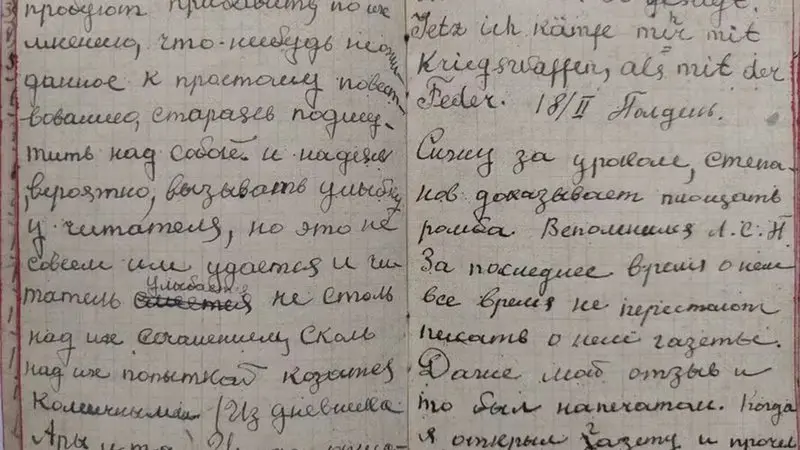 пробуют прибавить по их
мнению, что-нибудь неожи-
данное к простому повест-
вованию, стараясь подшу-
тить над собой и надеясь
, вероятно, вызывать улыбку
у читателя, но это не
совсем им удается и чи-
татель улыбается не столь
над их сочинением, сколь
над их попыткой казатся
Комичными (Из дневника
Ары
Jetz ich kämfe mir mit
Kriegswaffen, als mit der
Feder. 18/II Полдень.
Сижу за уроком, Степа-
нов доказывает площать
ромба. Вспомнился Л. С. П.
За последнее время о нем
все время не перестают
писать о нем газеты.
Даже мой отзыв и
то был напечатан. Когда
я открыл газету и прочел